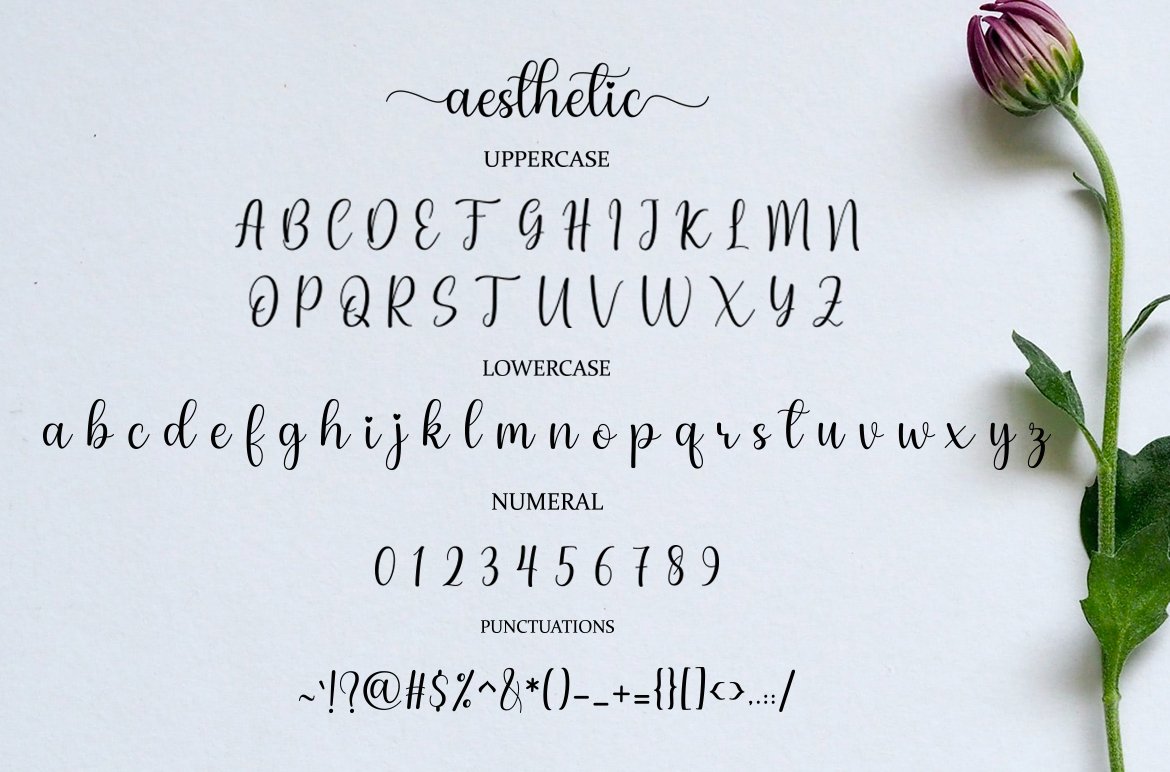 aesthetic
UPPERCASE
A B C D E F G H I J K L M N
O P Q R S T U V W X Y Z
LOWERCASE
a b c d e f g h i j k l m n o p q r s t u v w x y z
NUMERAL
0 1 2 3 4 5 6 7 8 9
PUNCTUATIONS
~`!?@#$%^&*()-_+={}[]<>,.:;/